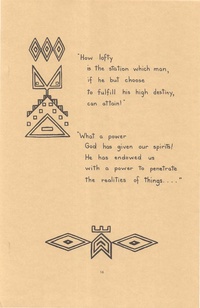 "How lofty
is the station which man,
if he but choose
to fulfill his high destiny,
can attain!"
"What a power
God has given our spirits!
He has endowed us
with a power to penetrate
the realities of things...."